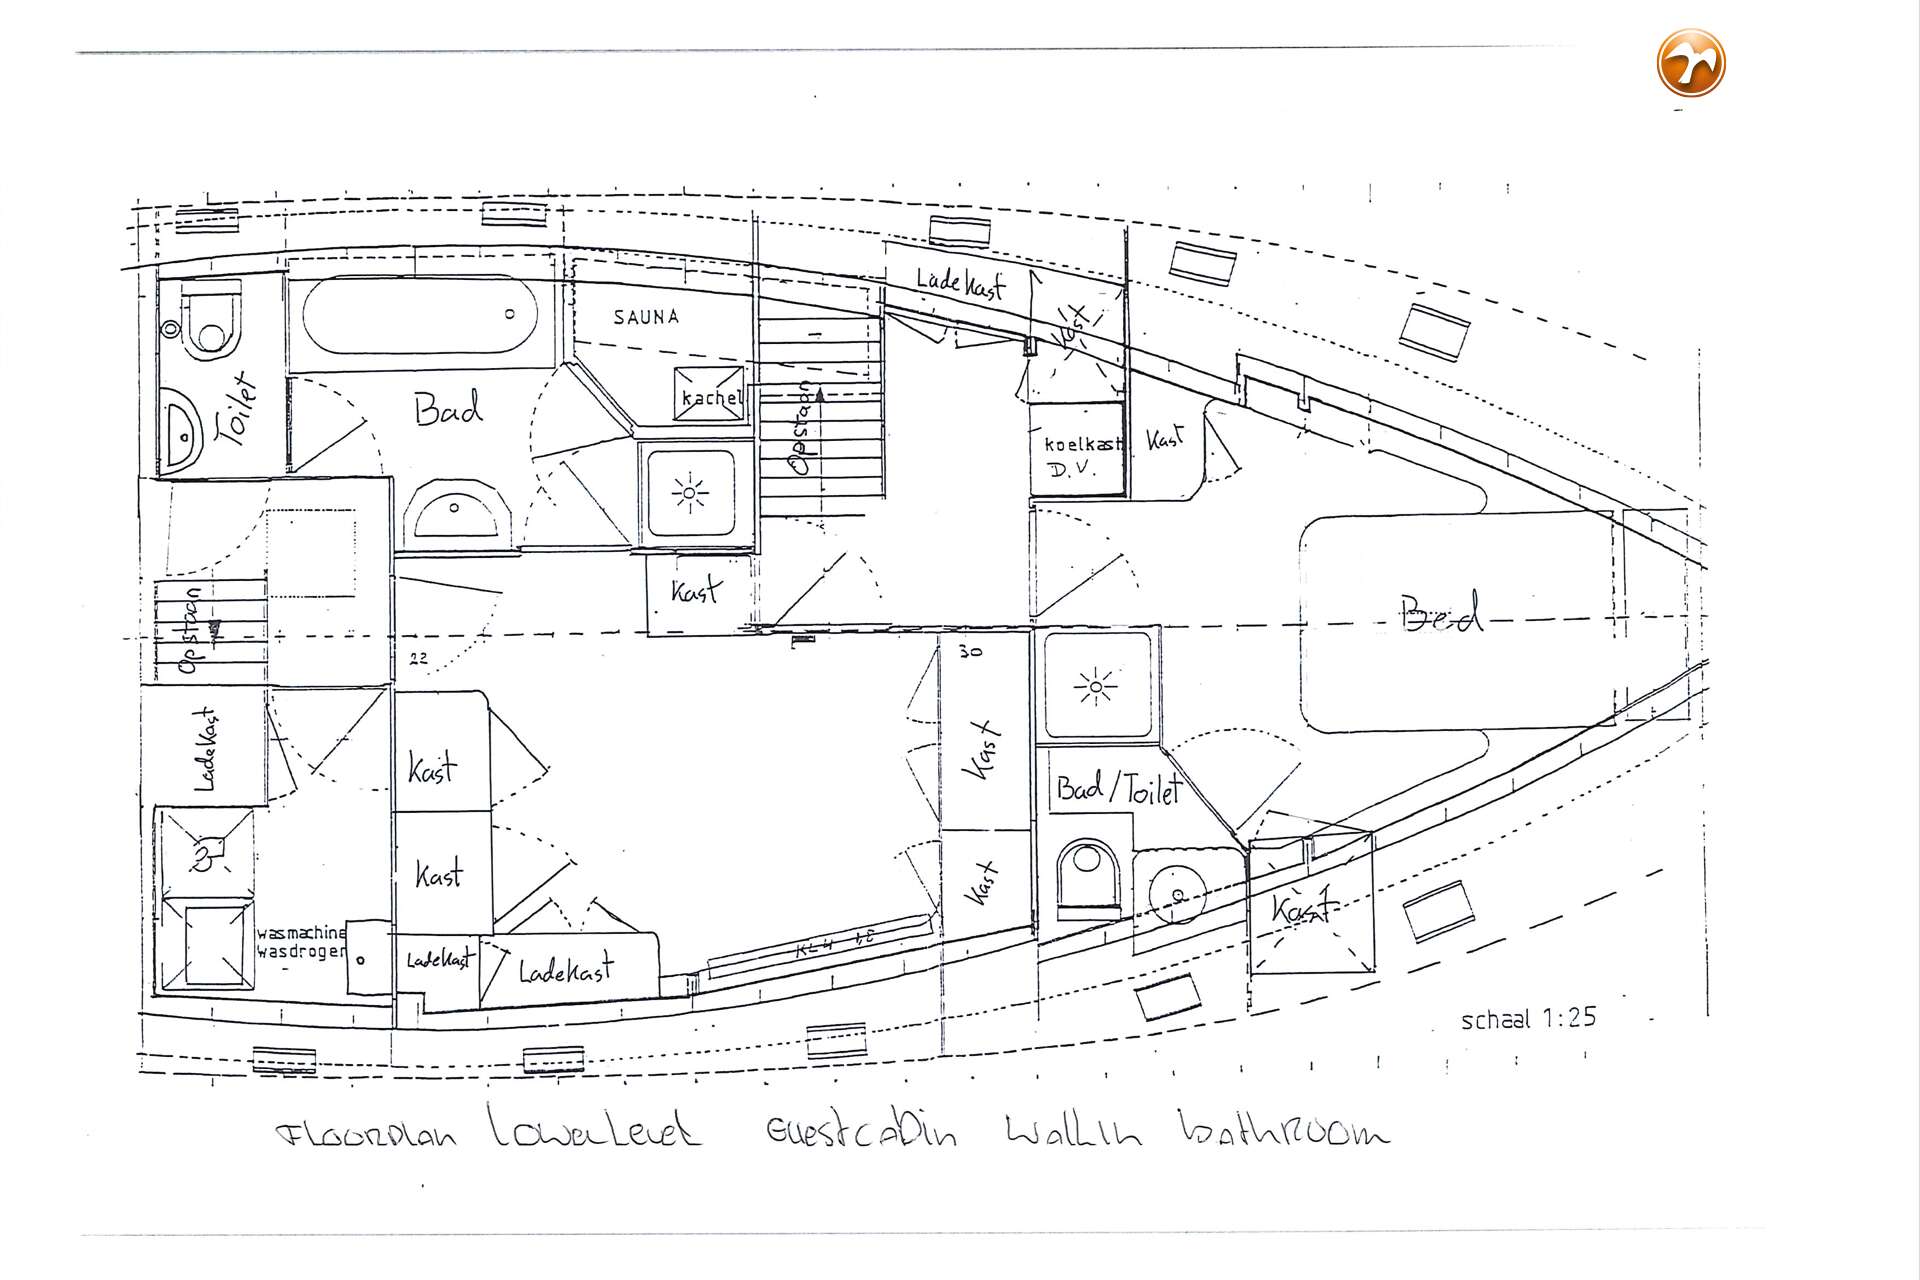 Ladekast
Kast
SAUNA
kachel
Toilet
Bad
Opstaan
koelkast
D.V.
Kast
Kast
Bed
Opstaan
22
30
Ladekast
Kast
Kast
Bad/Toilet
Kast
Kast
Kast
wasmachine
wasdroger
Ladekast
Ladekast
schaal 1:25
FLOORPLAN Lowerlevel Guestcabin Walkin bathroom